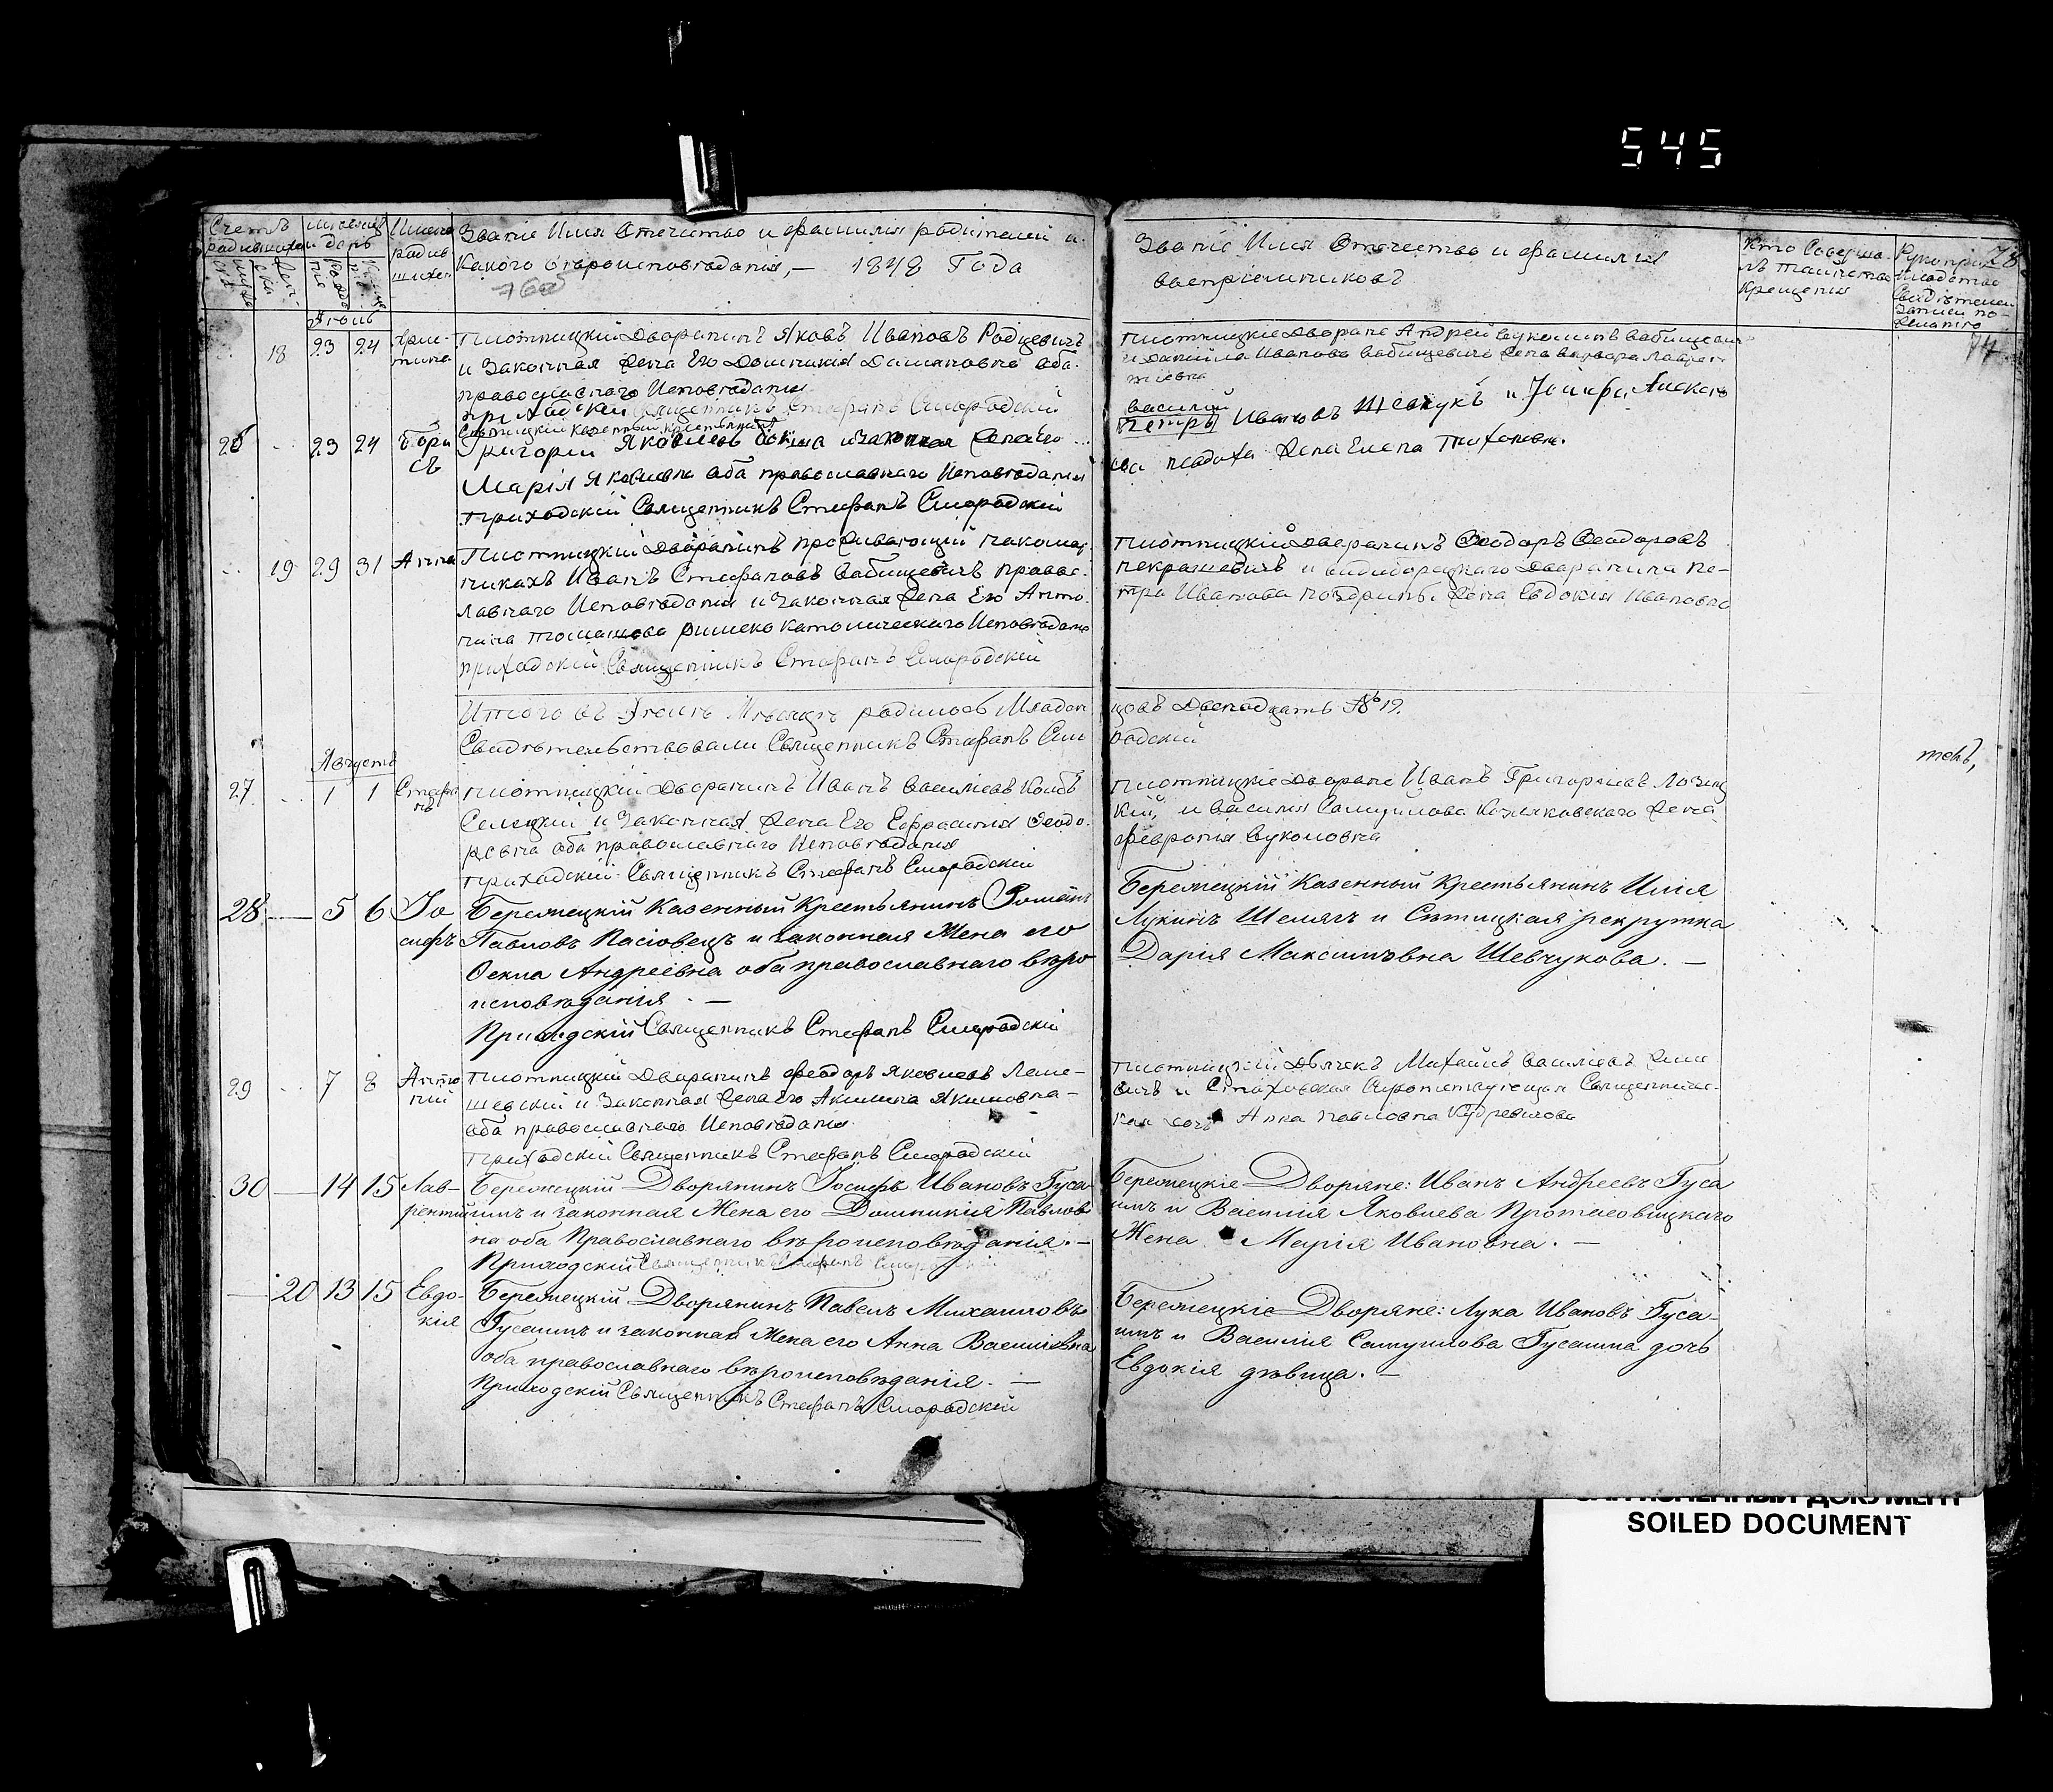 545
Счетъ
родившихся
Месяцъ
и день
Имена
родив
шихся
Званіе Имя Отечество и фамилія родителей и
Какого вѣроисповѣданія, — 1848 Года
Званіе Имя Отечество и фамилія
воспріемниковъ
Кто Соверша
лъ таинство
Крещенія
28
74
Іюль
18 23 24
Плотницкій Дворянинъ Яковъ Ивановъ Родцевичъ
и Законная Жена Его Домникия Дамяновна оба
православнаго Исповѣданія
Приходскій Священникъ Стефанъ Смородскій
Плотницкіе Дворяне Андрей Вуколовъ Вабищевичъ
и Данiила Иванова Вабищевича Жена Варвара Лаврен
тіевна
23 24 Бори
съ
Григорій Яковлевъ и законная Жена Его
Марія Яковлевна оба православнаго Исповѣданія
Приходскій Священникъ Стефанъ Смородскій
Василій
Петръ Ивановъ Шевчукъ и Іосифа Алексѣе
ва Жена Елена Тихоновн.
19 29 31 Анна
Плотницкій Дворянинъ проживающій
Иванъ Стефановъ Вабищевичъ правос
лавнаго Исповѣданія и Законная Жена Его Анто
нина Томашова Римско католическаго Исповѣданія
приходскій Священникъ Стефанъ Смородскій
Плотницкій Дворянинъ Ѳеодоръ Ѳеодоровъ
Некрашевичъ и Дворянина Пе-
тра Иванова Жена Евдокія Ивановна
Итого въ Іюлѣ Месяцѣ родилось Младен
цовъ Двенадцать № 12.
Свидѣтельствовали Священникъ Стефанъ Смо
родскій
тевъ,
Августъ
27 1 1 Стефа
нъ
Плотницкій Дворянинъ Иванъ Васильевъ Колбъ
Селецкій и Законная Жена Его Ефросинія Ѳеодо
ровна оба православнаго Исповѣданія
приходскій Священникъ Стефанъ Смородскій
Плотницкіе Дворяне Иванъ Григорьевъ Лозиц
кій, и Василія Самуилова Козляковскаго Жена
Февронія Вуколовна
28 5 6 Іо
сифъ
Бережецкій Казенный Крестьянинъ Романъ
Павловъ Пасіовецъ и законная Жена его
Ѳекла Андреевна оба православнаго вѣро
исповѣданія. —
Приходскій Священникъ Стефанъ Смородскій
Бережецкій Казенный Крестьянинъ Илія
Лукинъ Шелягъ и Сѣтицкая рекрутка
Дарія Максимовна Шевчукова. —
29 7 8 Анто
ній
Плотницкій Дворянинъ Феодоръ Яковлевъ Леме-
шевскій и Законная Жена Его Акилина Якимовна —
оба православнаго Исповѣданія
приходскій Священникъ Стефанъ Смородскій
Плотницкій Дьячекъ Михаилъ Васильевъ
вичъ и Священниче-
ская дочь Анна Павловна
30 14 15 Лав-
рентій
Бережецкій Дворянинъ Іосифъ Ивановъ Гуса
имъ и законная Жена его Домникія Павлов
на оба Православнаго вѣроисповѣданія. —
Приходскій Священникъ Стефанъ Смородскій
Бережецкіе Дворяне: Иванъ Андреевъ Гуса
имъ и Василія Яковлева Протасовицкаго
Жена Марія Ивановна. —
20 13 15 Евдо-
кія
Бережецкій Дворянинъ Павелъ Михаиловъ
Гусаимъ и законная Жена его Анна Васильевна
оба православнаго вѣроисповѣданія. —
Приходскій Священникъ Стефанъ Смородскій
Бережецкіе Дворяне: Лука Ивановъ Гуса-
имъ и Василія Самуилова Гусаима дочь
Евдокія дѣвица. —
SOILED DOCUMENT